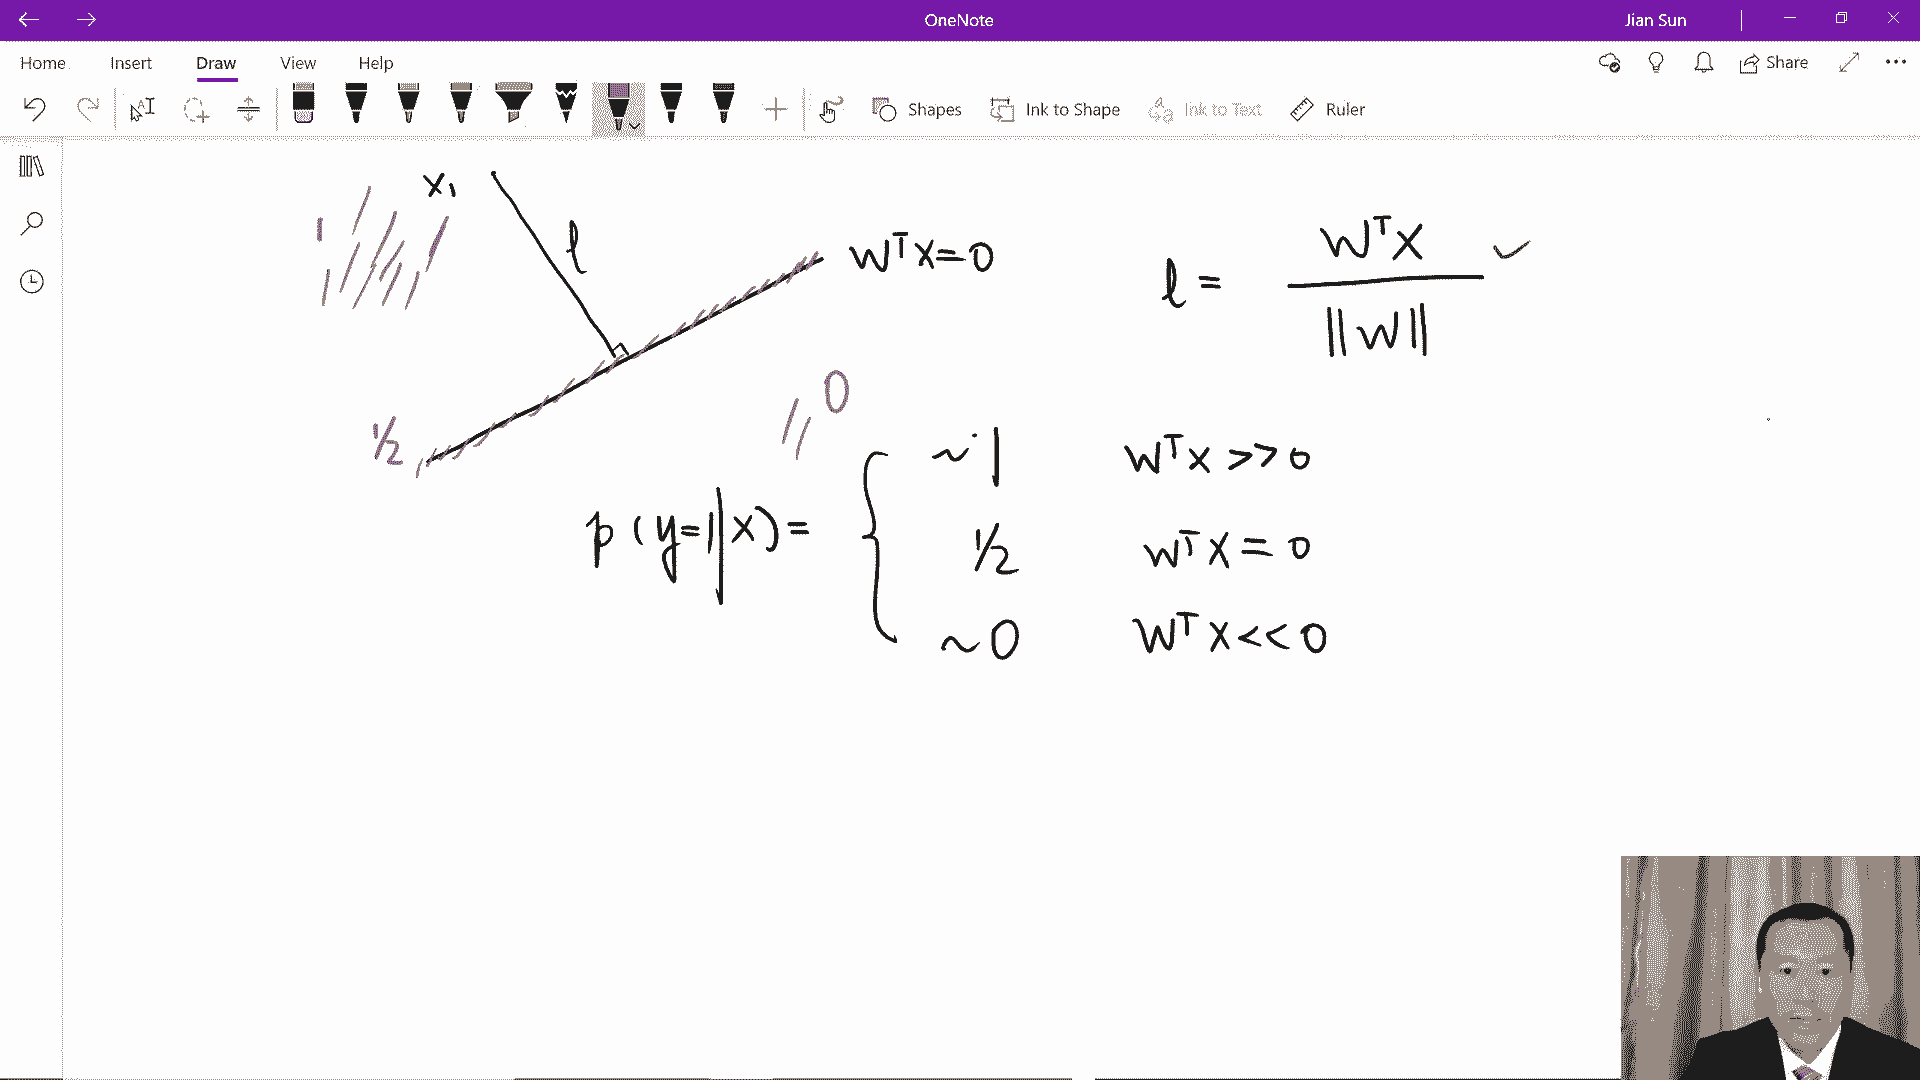 OneNote
Jian Sun
Home Insert Draw View Help
Share
Shapes Ink to Shape Ink to Text Ruler
x₁
l
WᵀX=0
l = WᵀX / ||W||
1
1/2
0
p(y=1|X)= { ~1 WᵀX >> 0
1/2 WᵀX = 0
~0 WᵀX << 0